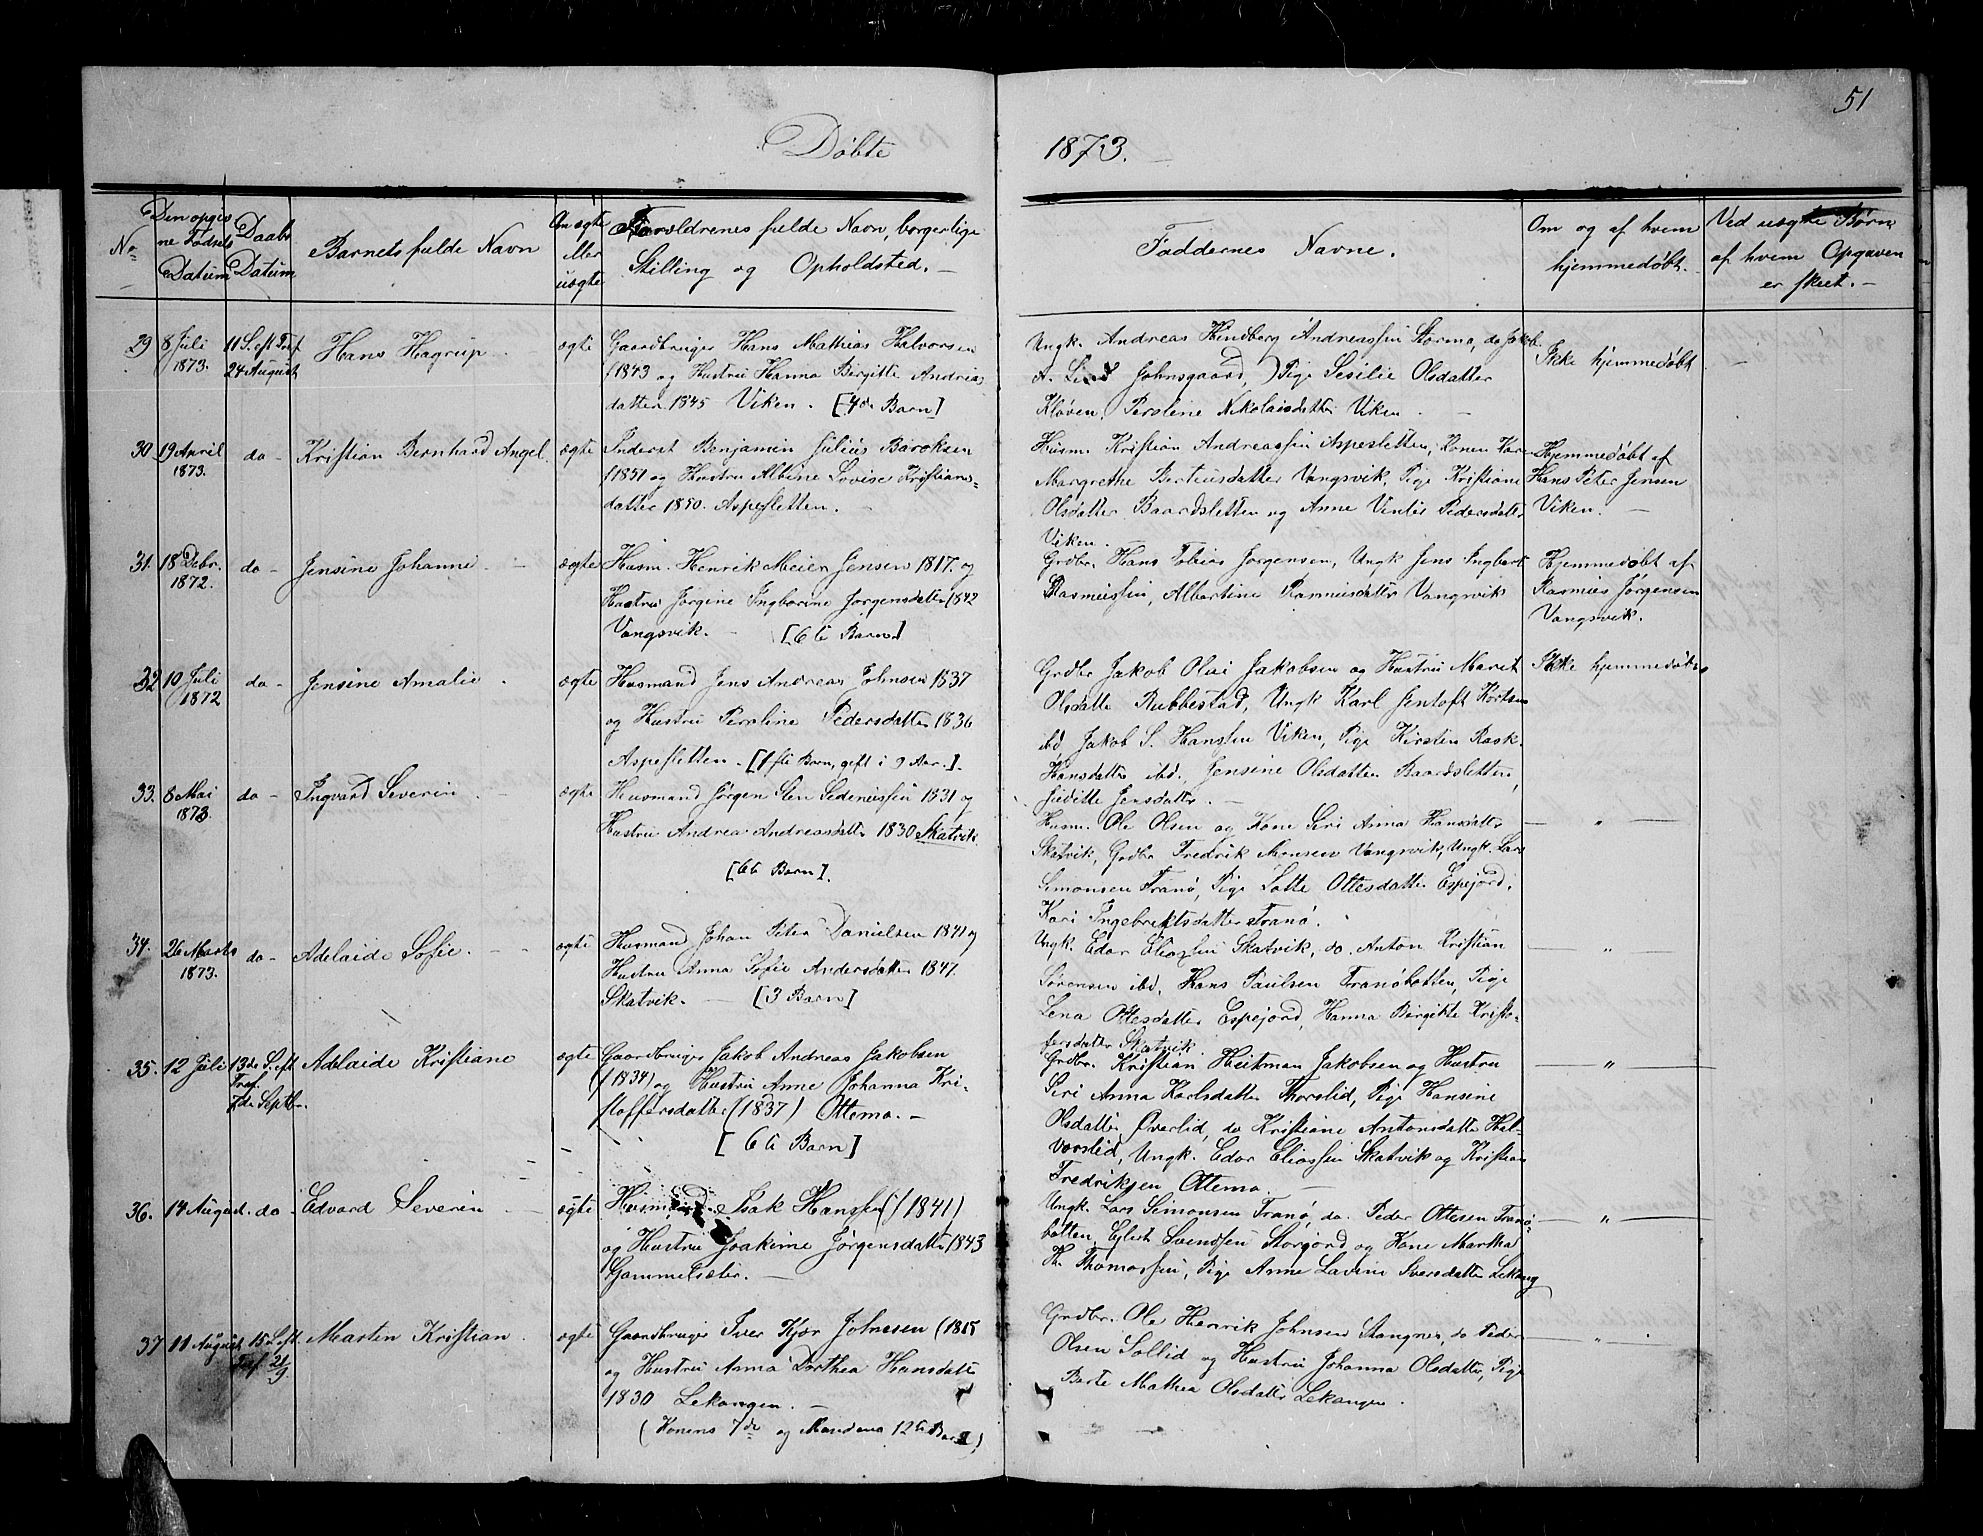 51
Døbte 1873.
No
Den opgiv
ne Fødsels
Datum
Daabs
Datum
Barnets fulde Navn
Om ægte
eller
uægte
Forældrenes fulde Navn, borgerlige
Stilling og Opholdsted. -
Faddernes Navne.
Om og af hvem
hjemmedøbt. -
Ved uægte Børn
af hvem Opgaven
er skeet. -
29 8 Juli
1873.
11 S. eft Tref
24 August
Hans Hagrup
ægte
Gaardbruger Hans Mathias Halvorsen
f 1843 og Hustru Hanna Birgitte Andreas
datter 1845 Viken. [4de Barn]
Ungk. Andreas Hindberg Andreassen Stormo, do Jakob
A. Lind Johnsgaard, Pige Sesilie Olsdatter
Kløven, Peroline Nikolaisdatter Viken. -
Ikke hjemmedøbt
30 19 April
1873.
do - Kristian Bernhard Angel.
ægte
Inderst Benjamin Julius Baroksen
f 1851 og Hustru Albine Lovise Kristians-
datter 1850. Aspesletten. -
Husm. Kristian Andreassen Aspesletten, Konen Kar
Margrethe Berteusdatter Vangsvik, Pige Kristiane
Olsdatter Baardsletten og Anne Pedersdatter
Viken.
Hjemmedøbt af
Hans Peter Jensen
Viken. -
31. 18 Debr.
1872.
do - Jensine Johanne -
ægte
Husm. Henrik Meier Jensen 1817. og
Hustru Jørgine Ingborine Jørgensdatter 1842
Vangsvik. - [6te Barn]
Grdbr. Hans Tobias Jørgensen, Ungk Jens Ingbart
Rasmussen, Albertine Rasmusdatter Vangsvik
Hjemmedøbt af
Rasmus Jørgensen
Vangsvik.
32 10 Juli
1872
do - Jensine Amalie -
ægte
Husmand Jens Andreas Johnsen 1837
og Hustru Peroline Pedersdatter 1836
Aspesletten. [1ste Barn, gift i 9 Aar.].
Grdbr Jakob Olai Jakobsen og Hustru Maret
Olsdatter Rubbestad, Ungk Karl Jentoft Kortsen
ibd Jakob S. Hanssen Viken, Pige Kirsten Rask
Hansdatter ibd. Jensine Olsdatter Baardsletten,
Jensdatter. -
Ikke hjemmedøbt
33. 8 Mai
1873.
do - Ingvard Severin -
ægte
Husmand Jørgen Sten Sedeniussen 1831 og
Hustru Andrea Andreasdatter 1830 Skatvik
[6te Barn].
Husm. Ole Olsen og Kone Siri Anna Hansdatter
Skatvik, Grdbr Fredrik Monsen Vangsvik, Ungk. Lars
Simonsen Tranø, Pige Lotte Ottesdatter Espejord,
Kari Ingebriktsdatter Tranø.
- " -
34. 26 Marts
1873.
do - Adelaide Sofie. -
ægte
Husmand Johan Peter Danielsen 1841 og
Hustru Anna Sofie Andersdatter 1847.
Skatvik. - [3 Barn]
Ungk. Edor Eliassen Skatvik, do. Anton Kristian
Sørensen ibd, Hans Paulsen Tranøbotten, Pige
Lena Ottesdatter Espejord, Hanna Birgitte Kristo-
fersdatter Skatvik
- " -
35. 12 Juli
13de S. eft
Tref.
7de Septbr.
Adelaide Kristiane
ægte
Gaardbruger Jakob Andreas Jakobsen
(f 1834) og Hustru Anne Johanna Kri-
stoffersdatter (1837) Ottemo. -
[6te Barn]
Grdbr. Kristian Heitman Jakobsen og Hustru
Siri Anna Karlsdatter Thorslid, Pige Hansine
Olsdatter Øverlid, do Kristiane Antonsdatter Hal-
vorslid, Ungk. Edor Eliassen Skatvik og Kristian
Fredriksen Ottemo. -
- " -
36. 14 August. do - Edvard Severin -
ægte
Husmand Isak Hanssen (f 1841)
og Hustru Joakime Jørgensdatter 1843
Gammelsæter. -
Ungk. Lars Simonsen Tranø, do. Peder Ottesen Tranø-
botten, Eglet Svendsen Storjord og Kone Martha
K. Thomassen, Pige Anne Lavine Iversdatter Lekang
- " -
37 11 August
15 S. eft.
Tref. 21/9
Marten Kristian.
ægte
Gaardbruger Iver Kjær Johnsen (1815
og Hustru Anna Dorthea Hansdatter
1830 Lekangen. -
(Konens 7de og Mandens 12te Barn)
Grdbr. Ole Henrik Johnsen Stangnes, do Peder
Olsen Sollid og Hustru Johanna Olsdatter, Pige
Berte Mathea Olsdatter Lekangen.
- " -